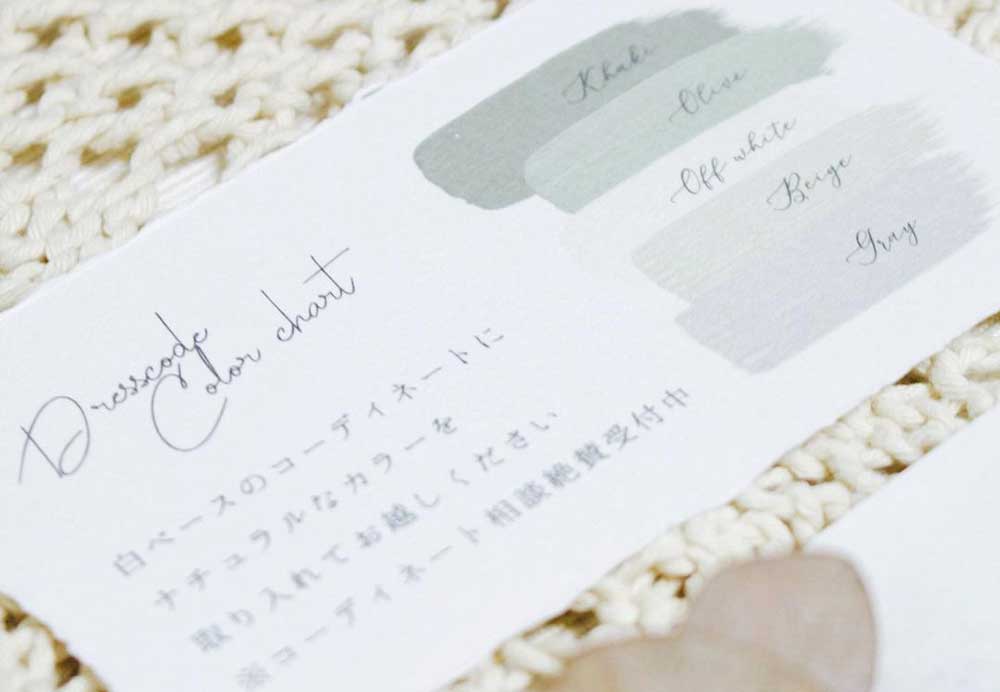 Khaki
Olive
Off white
Beige
Gray
Dresscode
Color chart
白ベースのコーディネートに
ナチュラルなカラーを
取り入れてお越しください
※コーディネート相談絶賛受付中